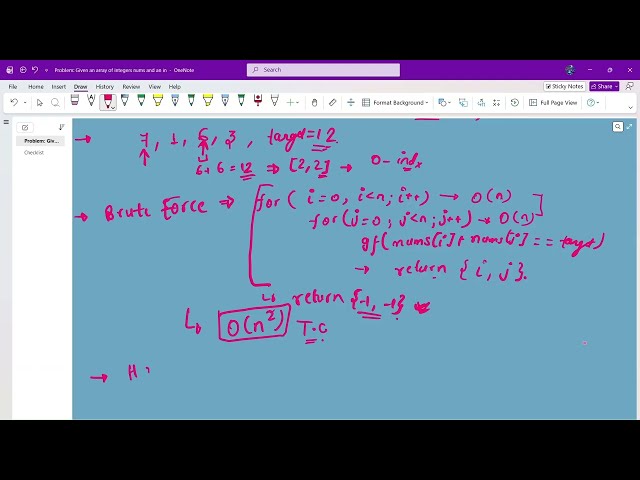 Problem: Given an array of integers nums and an in - OneNote
Search
File Home Insert Draw View Help
Sticky Notes Share
Format Background Full Page View
Problem: Giv...
Checklist
→ 7, 1, 6, 3, target=12
6+6=12 ⇒ [2,2] → 0-index
→ Brute Force ⇒ for( i=0, i<n; i++) → O(n)
for(j=0, j<n; j++) → O(n)
if(nums[i]+nums[j]==target)
→ return {i, j}.
↳ return {-1, -1}
↳ O(n²) T.C
→ H